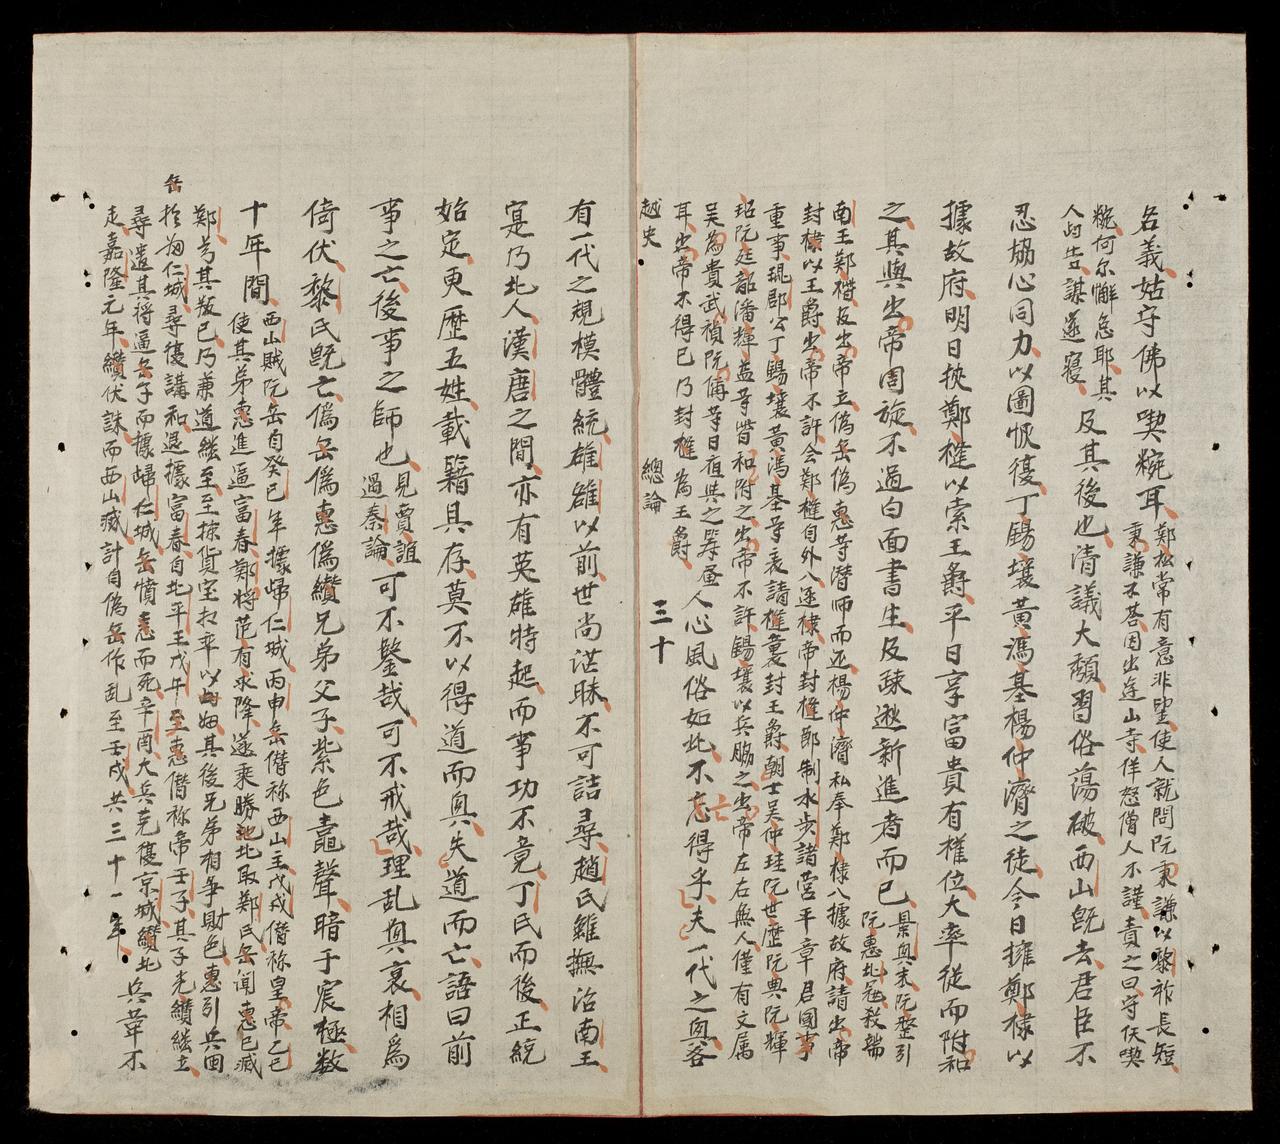 名義姑守佛以喫糍耳鄭松常有意非望使人就問阮秉謙以黎祚長短
秉謙不荅因出遊山寺佯怒僧人不謹責之曰守佛喫
糍何尔懈怠耶其
人歸告謀遂寢
及其後也清議大頹習俗蕩破西山旣去君臣不
忍協心同力以圖恢復丁錫壤黃馮基楊仲濟之徒今日擁鄭棣以
據故府明日挾鄭槰以索王爵平日享富貴有權位大率從而附和
之其與出帝周旋不過白面書生及疎逖新進者而已景興末阮整引
阮惠北冦殺端
南王鄭楷及出帝立偽岳偽惠等潛師而还楊仲濟私奉鄭棣八據故府請出帝
封棣以王爵出帝不許会鄭槰自外入逐棣帝封槰節制水步諸營平章軍國事
重事琨郡公丁錫壤黃馮基等表請槰襲封王爵朝士吳仲珪阮世歷阮典阮輝
玿阮廷韶潘輝益等皆和附之出帝不許錫壤以兵脇之出帝左右無人僅有文属
吳為貴武禎阮僃等日夜與之籌畫
耳出帝不得已乃封槰為王爵
人心風俗如此不忘得乎夫一代之興各
越史 總論 三十
有一代之規模體統雄雒以前世尚茫昧不可詰尋趙氏雖撫治南土
寔乃北人漢唐之間亦有英雄特起而事功不竟丁氏而後正統
始定更歷五姓載籍具存莫不以得道而興失道而亡語曰前
事之亡後事之師也見賈誼
過秦論
可不鑒哉可不戒哉理乱興衰相爲
倚伏黎氏旣亡偽岳偽惠偽纘兄弟父子紫色鼃聲暗于宸極数
十年間西山賊阮岳自癸巳年據歸仁城丙申岳僣称西山王戊戌僣称皇帝乙巳
使其弟惠進逼富春鄭将范有求降遂乘勝北取鄭氏岳闻惠已滅
鄭芳其叛己乃兼道継至至掠貨宝於京以歸其後兄弟相争財色惠引兵囲
岳於㱕仁城尋復講和退據富春自北平王戊午年至惠僣称帝壬子其子光纘継立
尋遣其将逼岳子而據歸仁城岳憤恚而死辛酉大兵克復京城纘北
走嘉隆元年纘伏誅而西山滅計自偽岳作乱至壬戌共三十一年
兵革不